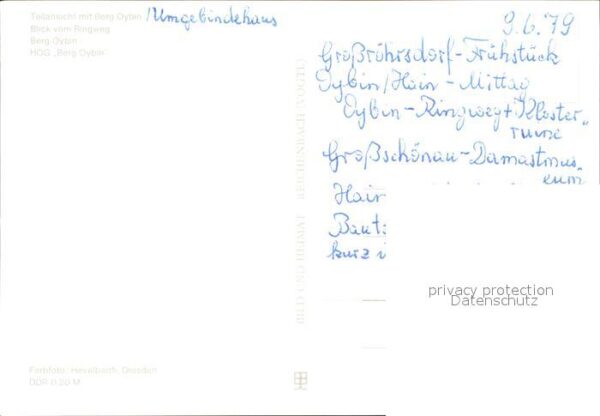 Teilansicht mit Berg Oybin /Umgebindehaus
Blick vom Ringweg
Berg Oybin
HOG „Berg Oybin"
9.6.79
Großröhrsdorf-Frühstück
Oybin/Hain - Mittag
Oybin-Ringweg+Kloster„
ruine
Großschönau-Damastmus„
eum
Hain
Baut
kurz i
BILD UND HEIMAT REICHENBACH (VOGTL)
privacy protection
Datenschutz
Farbfoto: Dresden
DDR 0,20 M